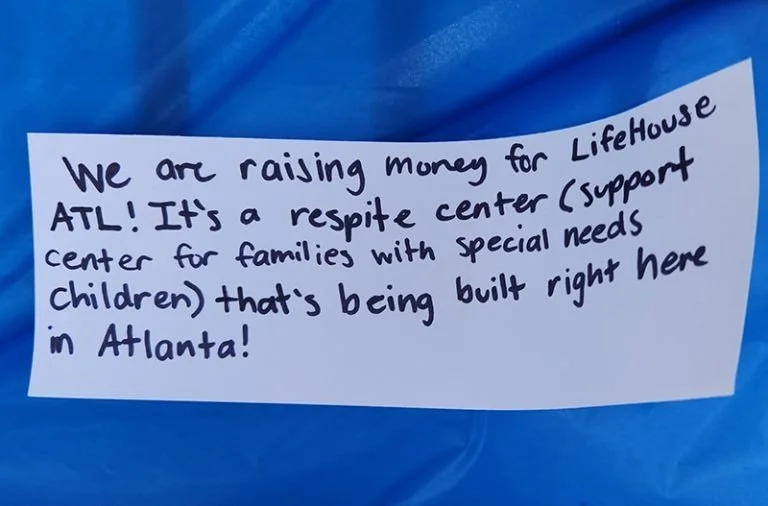 We are raising money for LifeHouse
ATL! It's a respite center (support
center for families with special needs
children) that's being built right here
in Atlanta!